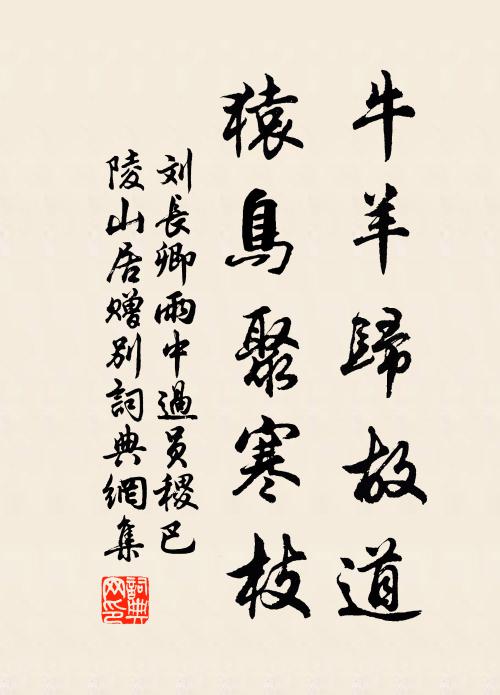 牛羊歸故道
猿鳥聚寒枝
刘長卿雨中過员稷巴
陵山居赠别詞典網集
詞典
网印